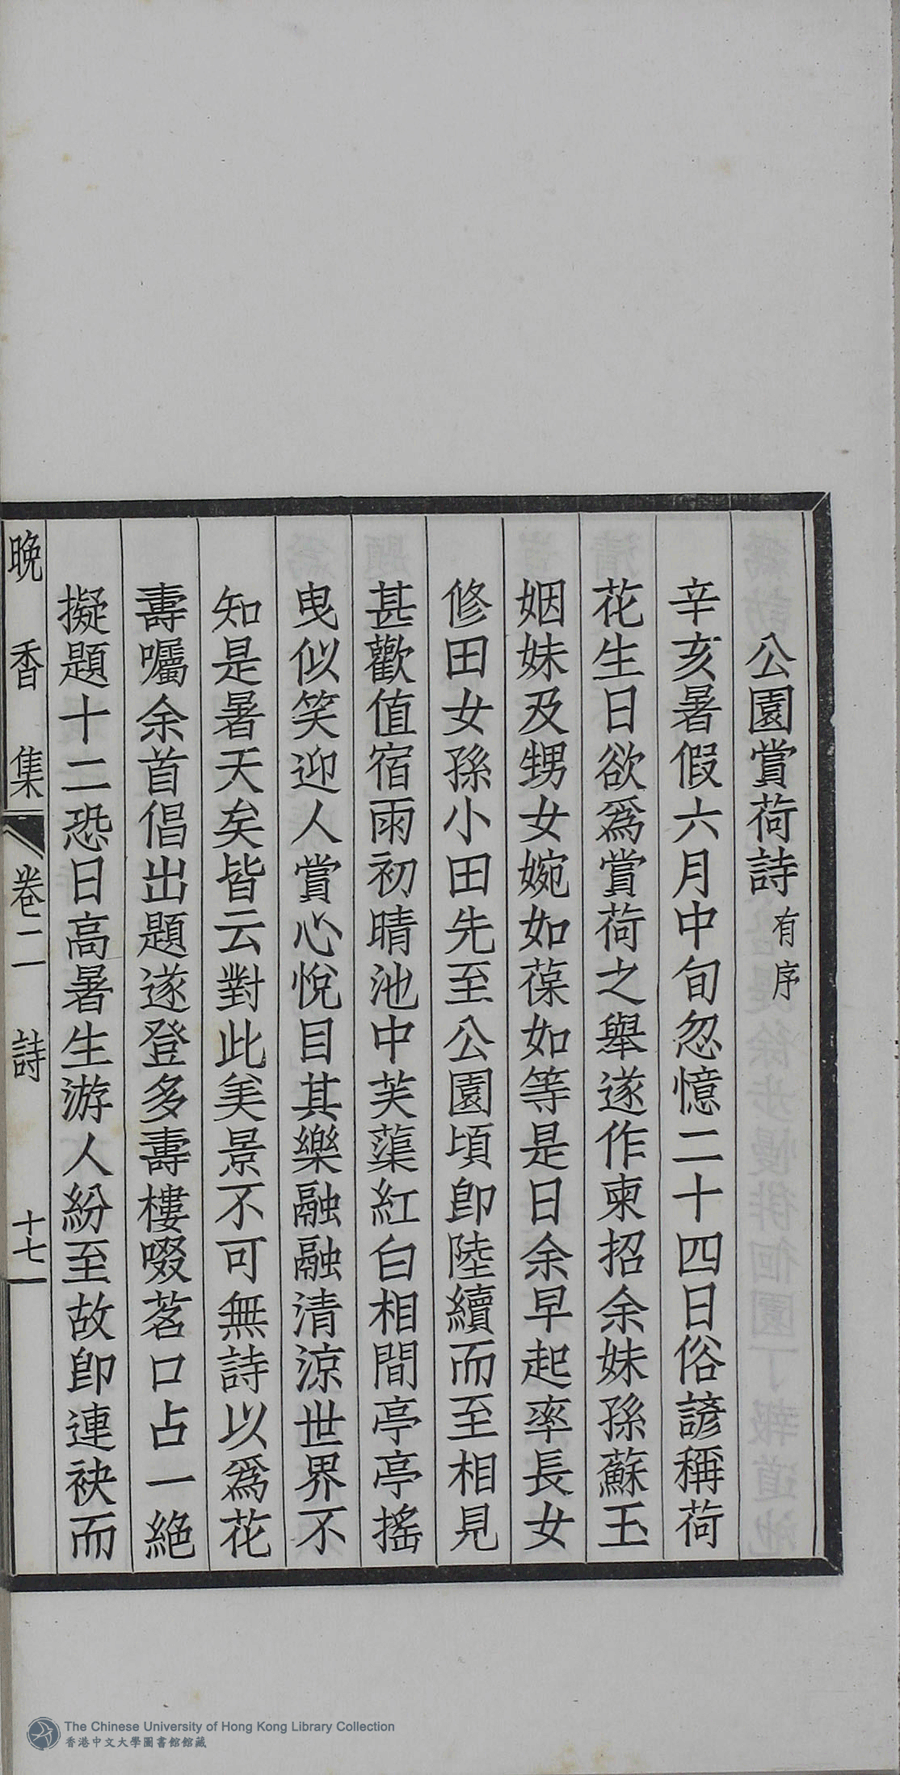 公園賞荷詩 有序
辛亥暑假六月中旬忽憶二十四日俗諺稱荷
花生日欲爲賞荷之舉遂作柬招余妹孫蘇玉
姻妹及甥女婉如葆如等是日余早起率長女
修田女孫小田先至公園頃卽陸續而至相見
甚歡值宿雨初晴池中芙蕖紅白相間亭亭搖
曳似笑迎人賞心悅目其樂融融清涼世界不
知是暑天矣皆云對此美景不可無詩以爲花
壽囑余首倡出題遂登多壽樓啜茗口占一絕
擬題十二恐日高暑生游人紛至故卽連袂而
晚香集 卷二 詩 十七
The Chinese University of Hong Kong Library Collection
香港中文大學圖書館館藏